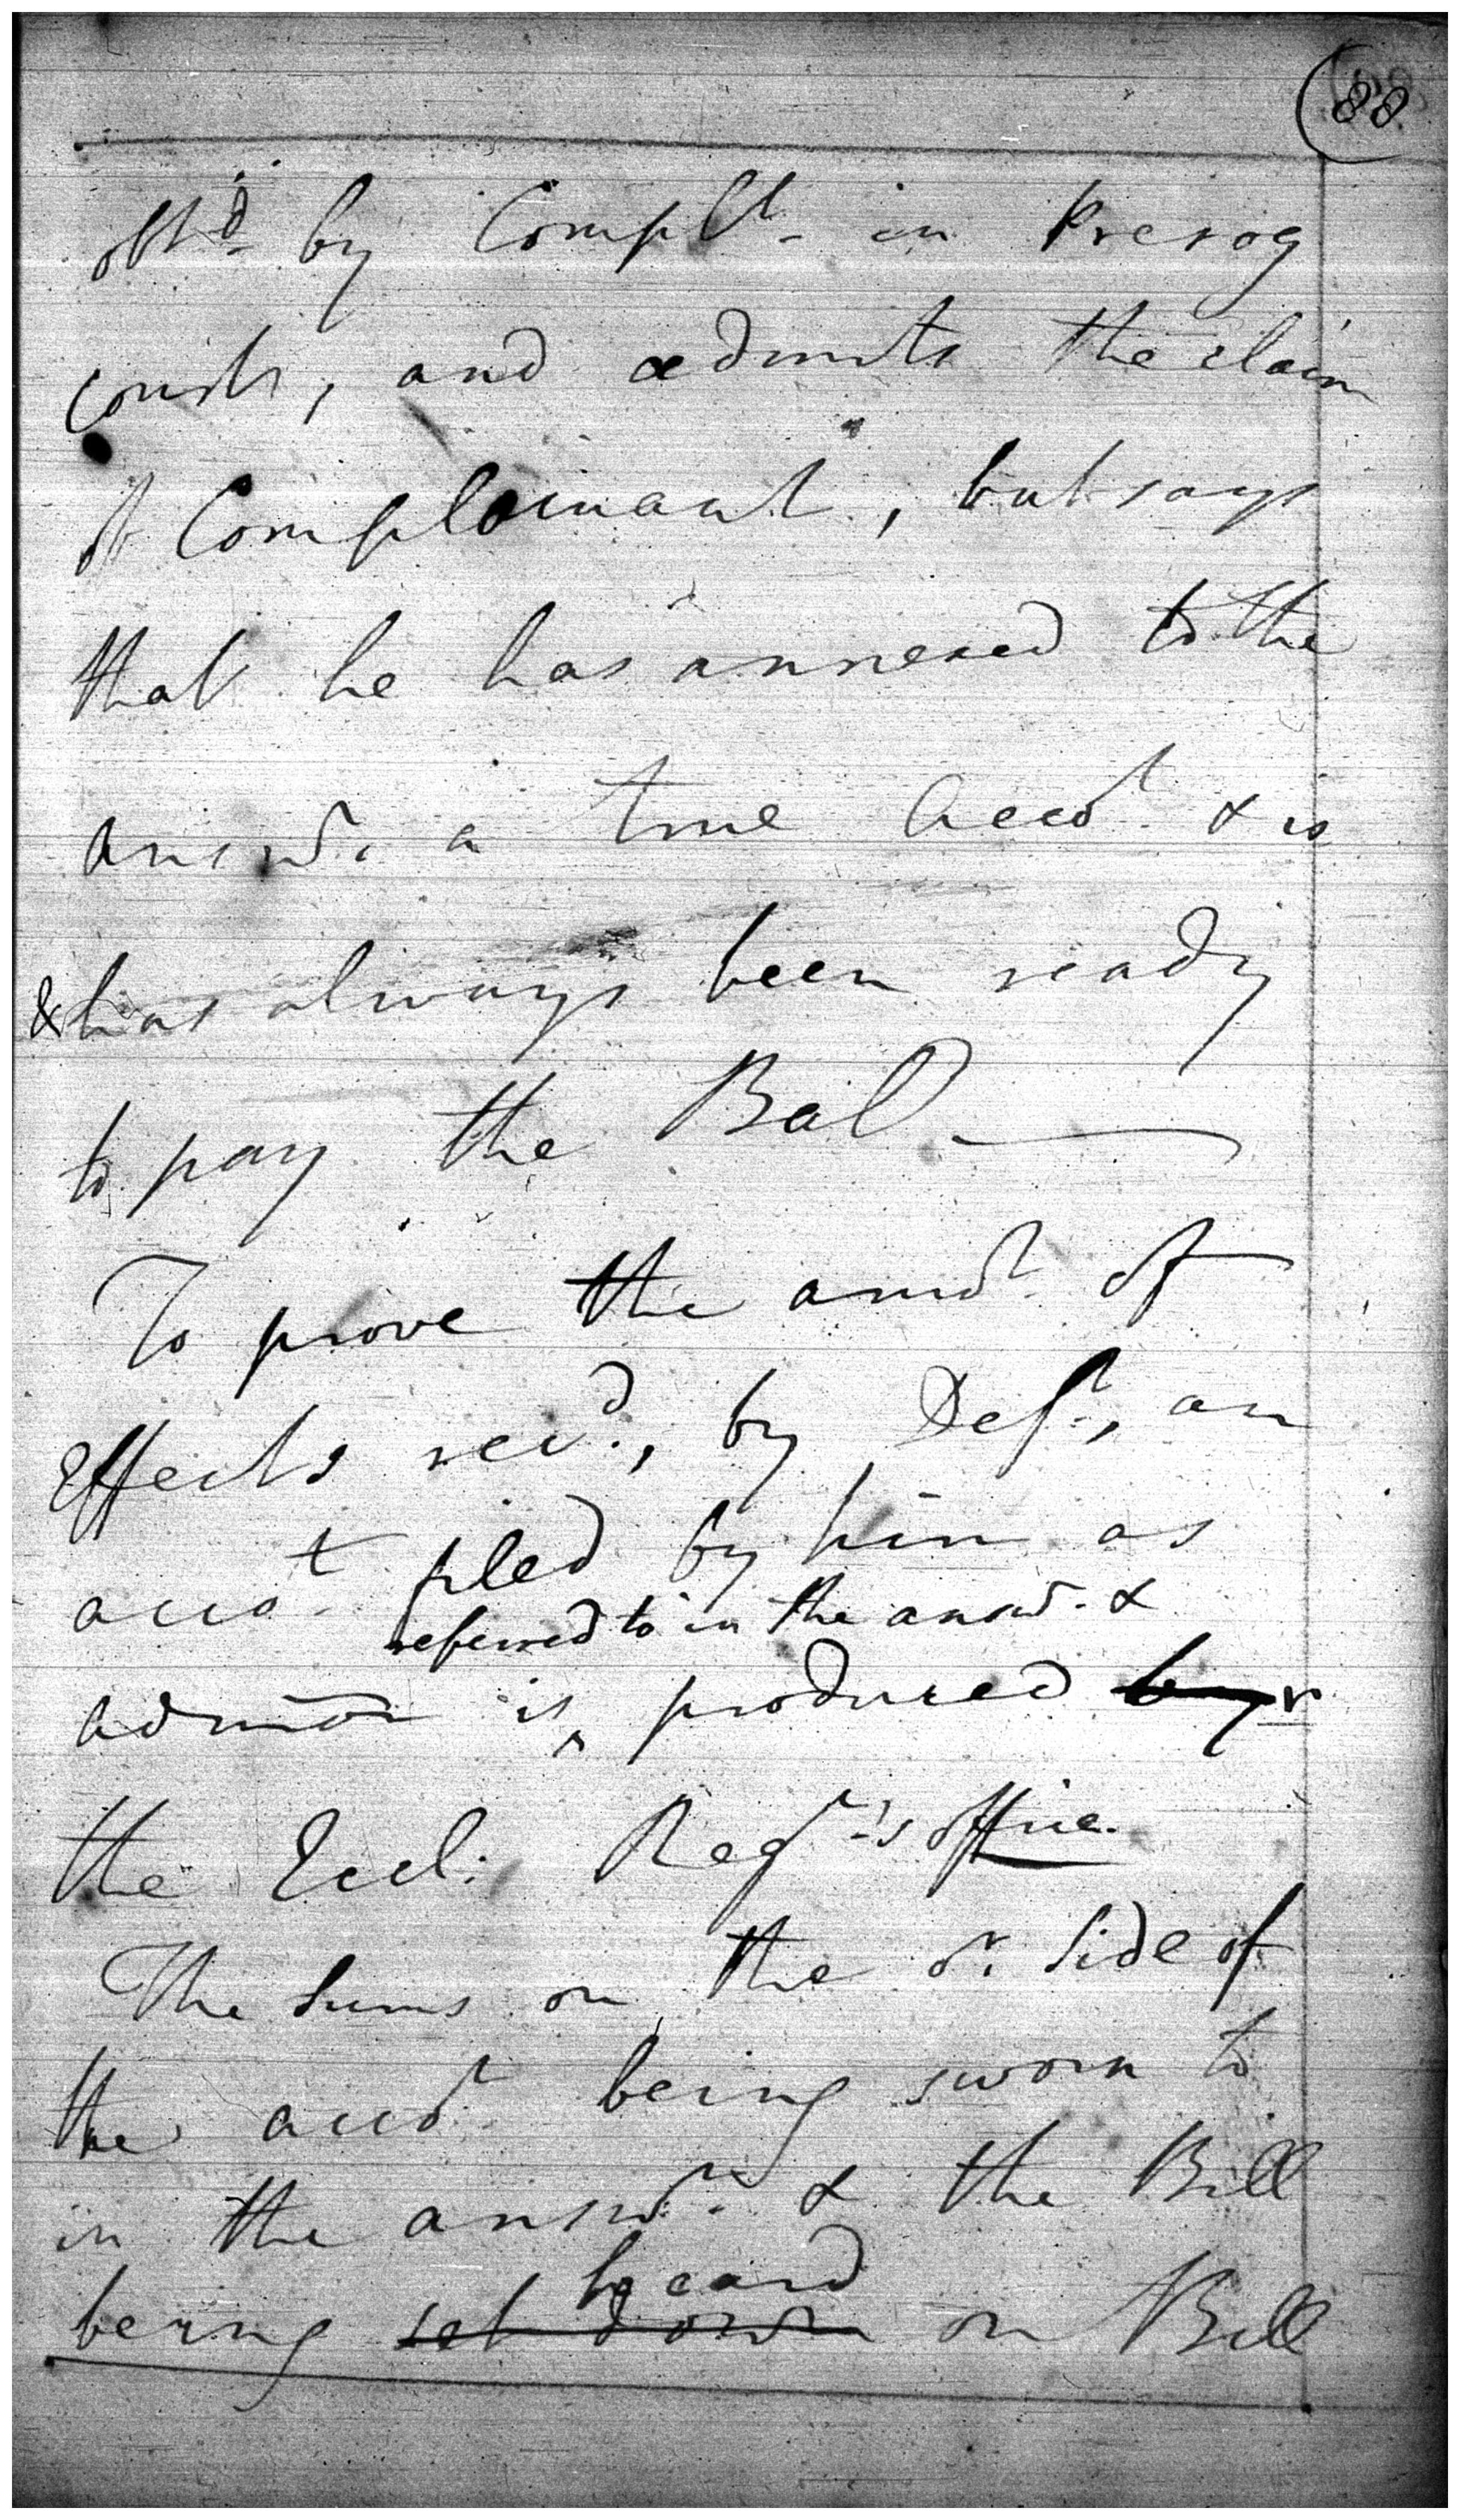 88
obtd. by Complt. in Prerog
Courts, and admits the claim
of Complainant, but says
that he has annexed to the
answr. a true Accot. & is
& has always been ready
to pay the Bal.
To prove the amot. of
Effects recd., by Deft., an
accot. filed by him as
referred to in the answr. &
admor is ^ produced by r
the Eccl: Regr.'s office.
The Sums on the Dr. Side of
the accot. being sworn to
in the answr. & the Bill
heard
being set down on Bill